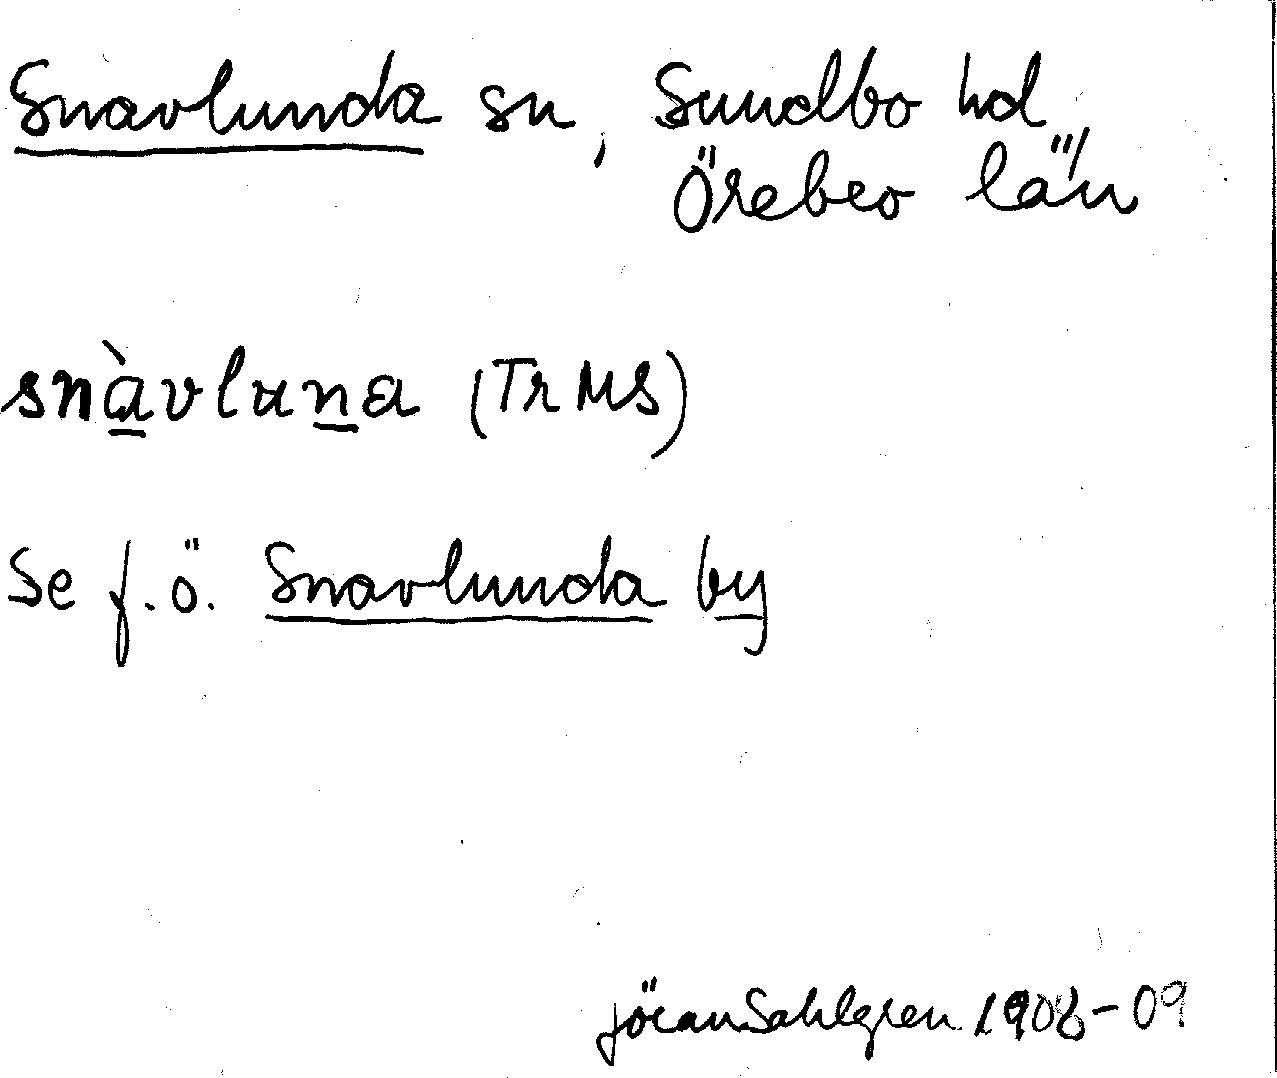 Snavlunda sn, Sundbo hd
Örebro län
snàvluna (TrMS)
Se f.ö. Snavlunda by
Jöran Sahlgren 1908-09